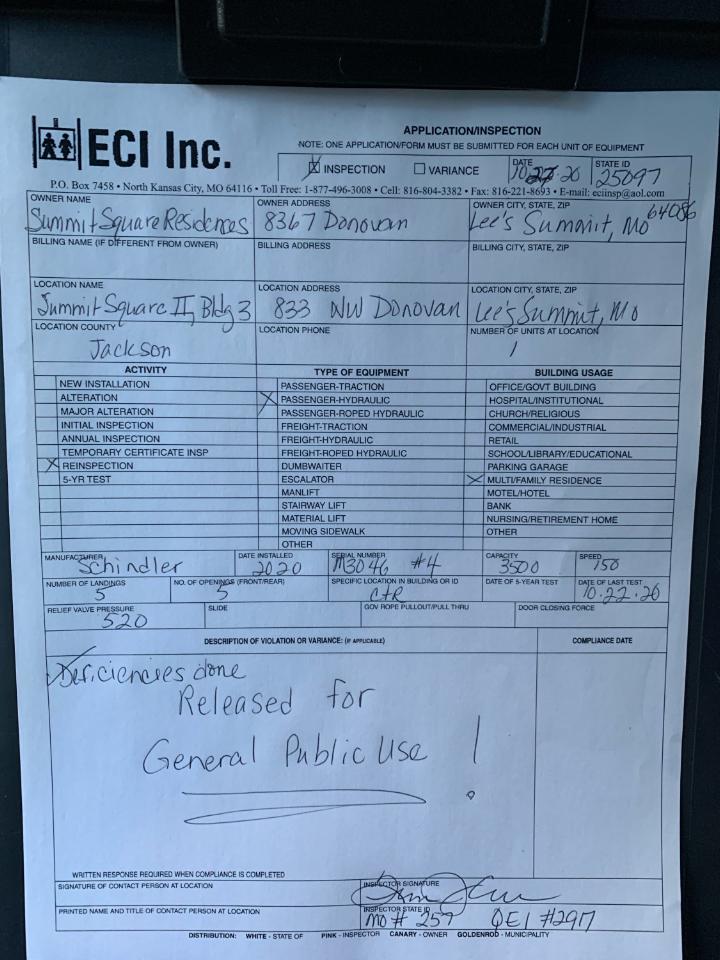 ECI Inc.
APPLICATION/INSPECTION
NOTE: ONE APPLICATION/FORM MUST BE SUBMITTED FOR EACH UNIT OF EQUIPMENT
X INSPECTION VARIANCE DATE 10.27.20 STATE ID 25097
P.O. Box 7458 • North Kansas City, MO 64116 • Toll Free: 1-877-496-3008 • Cell: 816-804-3382 • Fax: 816-221-8693 • E-mail: eciinsp@aol.com
OWNER NAME OWNER ADDRESS OWNER CITY, STATE, ZIP
Summit Square Residences 8367 Donovan Lee's Summit, Mo 64086
BILLING NAME (IF DIFFERENT FROM OWNER) BILLING ADDRESS BILLING CITY, STATE, ZIP
LOCATION NAME LOCATION ADDRESS LOCATION CITY, STATE, ZIP
Summit Square II, Bldg 3 833 NW Donovan Lee's Summit, Mo
LOCATION COUNTY LOCATION PHONE NUMBER OF UNITS AT LOCATION
Jackson 1
ACTIVITY TYPE OF EQUIPMENT BUILDING USAGE
NEW INSTALLATION PASSENGER-TRACTION OFFICE/GOVT BUILDING
ALTERATION X PASSENGER-HYDRAULIC HOSPITAL/INSTITUTIONAL
MAJOR ALTERATION PASSENGER-ROPED HYDRAULIC CHURCH/RELIGIOUS
INITIAL INSPECTION FREIGHT-TRACTION COMMERCIAL/INDUSTRIAL
ANNUAL INSPECTION FREIGHT-HYDRAULIC RETAIL
TEMPORARY CERTIFICATE INSP FREIGHT-ROPED HYDRAULIC SCHOOL/LIBRARY/EDUCATIONAL
X REINSPECTION DUMBWAITER PARKING GARAGE
5-YR TEST ESCALATOR X MULTI/FAMILY RESIDENCE
MANLIFT MOTEL/HOTEL
STAIRWAY LIFT BANK
MATERIAL LIFT NURSING/RETIREMENT HOME
MOVING SIDEWALK OTHER
OTHER
MANUFACTURER DATE INSTALLED SERIAL NUMBER CAPACITY SPEED
Schindler 2020 M3046 #4 3500 150
NUMBER OF LANDINGS NO. OF OPENINGS (FRONT/REAR) SPECIFIC LOCATION IN BUILDING OR ID DATE OF 5-YEAR TEST DATE OF LAST TEST
5 5 CTR 10.22.20
RELIEF VALVE PRESSURE SLIDE GOV ROPE PULLOUT/PULL THRU DOOR CLOSING FORCE
520
DESCRIPTION OF VIOLATION OR VARIANCE: (IF APPLICABLE) COMPLIANCE DATE
Deficiencies done
Released for
General Public Use !
WRITTEN RESPONSE REQUIRED WHEN COMPLIANCE IS COMPLETED
SIGNATURE OF CONTACT PERSON AT LOCATION INSPECTOR SIGNATURE
PRINTED NAME AND TITLE OF CONTACT PERSON AT LOCATION INSPECTOR STATE ID
MO # 259 QEI #2917
DISTRIBUTION: WHITE - STATE OF PINK - INSPECTOR CANARY - OWNER GOLDENROD - MUNICIPALITY